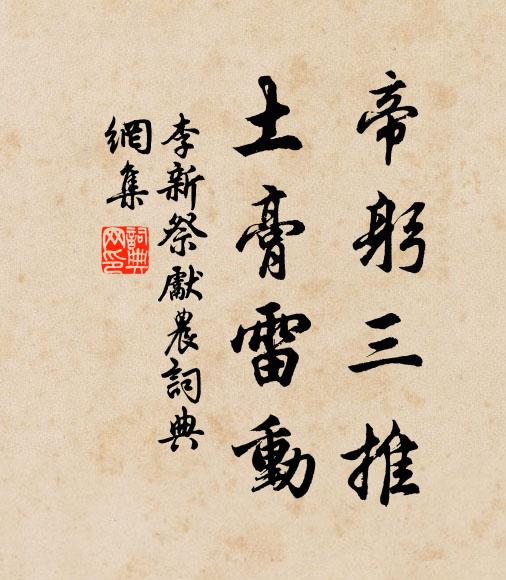 帝躬三推
土膏雷動
李新祭獻農詞典
網集
詞典网印